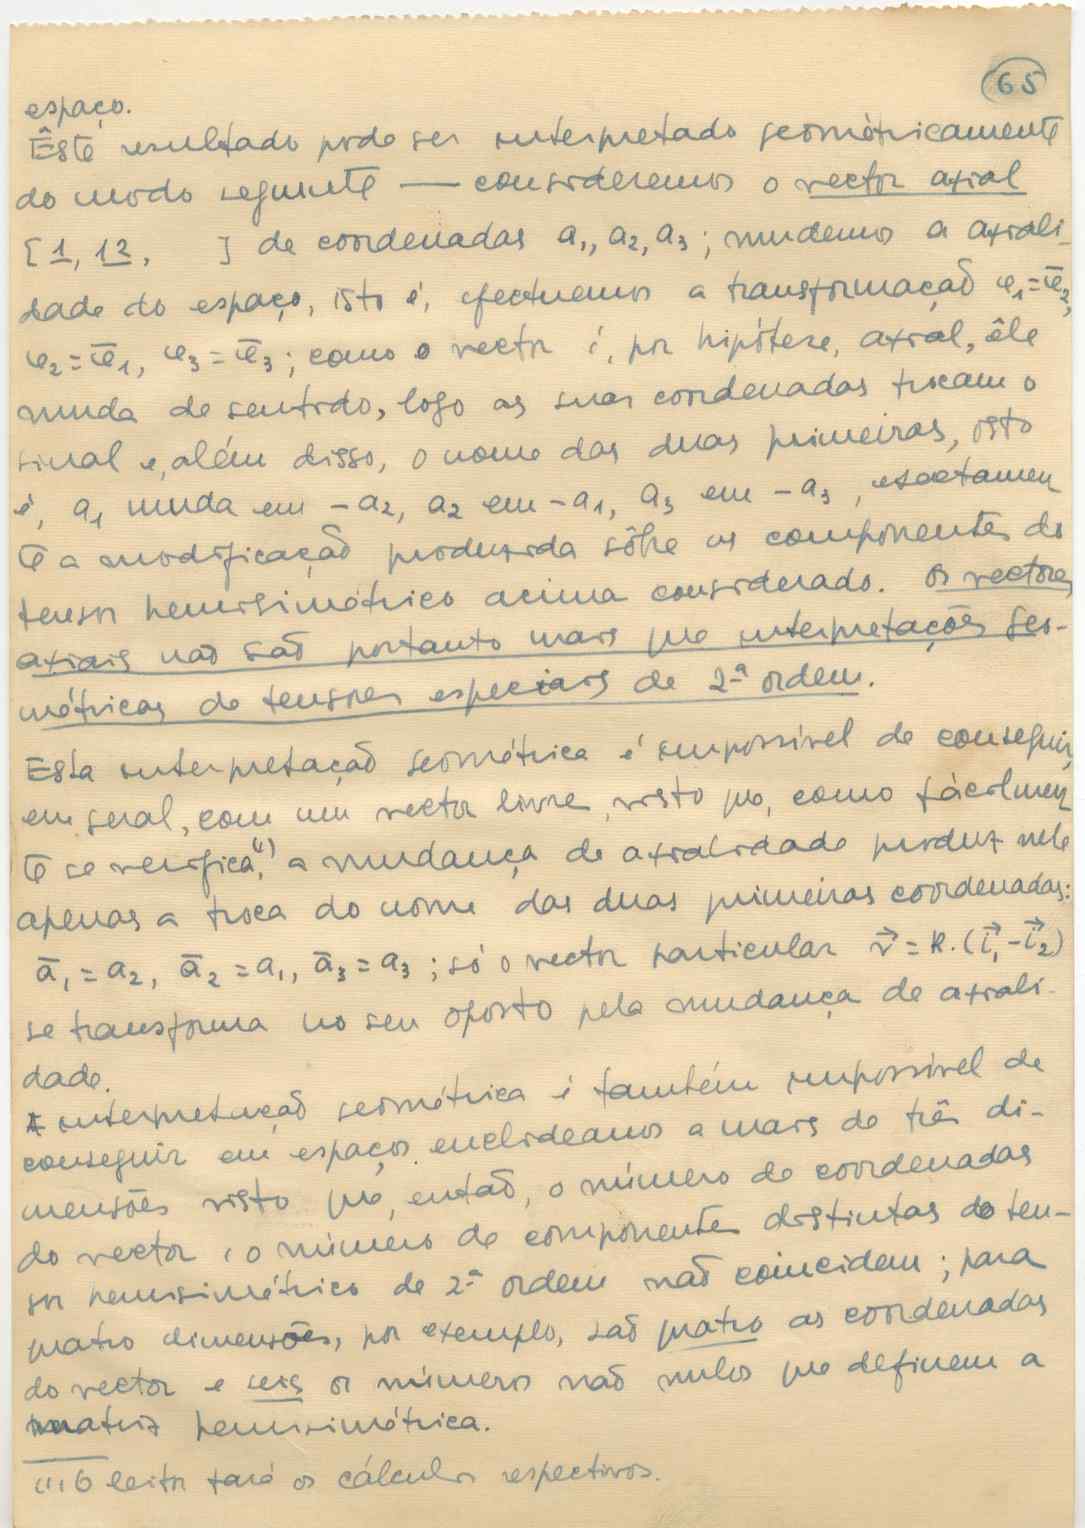 65
espaço.
Êste resultado pode ser interpretado geomètricamente
do modo seguinte — consideremos o vector axial
[1, 12,     ] de coordenadas a₁, a₂, a₃; mudemos a axiali-
dade do espaço, isto é, efectuemos a transformação φ₁=φ̄₂,
φ₂=φ̄₁, φ₃=φ̄₃; como o vector é, por hipótese, axial, êle
muda de sentido, logo as suas coordenadas trocam o
sinal e, além disso, o nome das duas primeiras, isto
é, a₁ muda em -a₂, a₂ em -a₁, a₃ em -a₃, exactamen
te a modificação produzida sôbre os componentes do
tensor hemisimétrico acima considerado. Os vectores
axiais não são portanto mais que interpretações geo-
métricas de tensores especiais de 2ª ordem.
Esta interpretação geométrica é impossível de conseguir,
em geral, com um vector livre, visto que, como fàcilmen
te se verifica⁽¹⁾, a mudança de axialidade produz nele
apenas a troca do nome das duas primeiras coordenadas:
ā₁ = a₂, ā₂ = a₁, ā₃ = a₃; só o vector particular v⃗ = k.(i⃗₁-i⃗₂)
se transforma no seu oposto pela mudança de axiali-
dade.
A interpretação geométrica é também impossível de
conseguir em espaços euclideanos a mais de três di-
mensões visto que, então, o número de coordenadas
do vector e o número de componentes distintas do ten-
sor hemisimétrico de 2ª ordem não coincidem; para
quatro dimensões, por exemplo, são quatro as coordenadas
do vector e seis os números não nulos que definem a
matriz hemisimétrica.
(1) O leitor fará os cálculos respectivos.